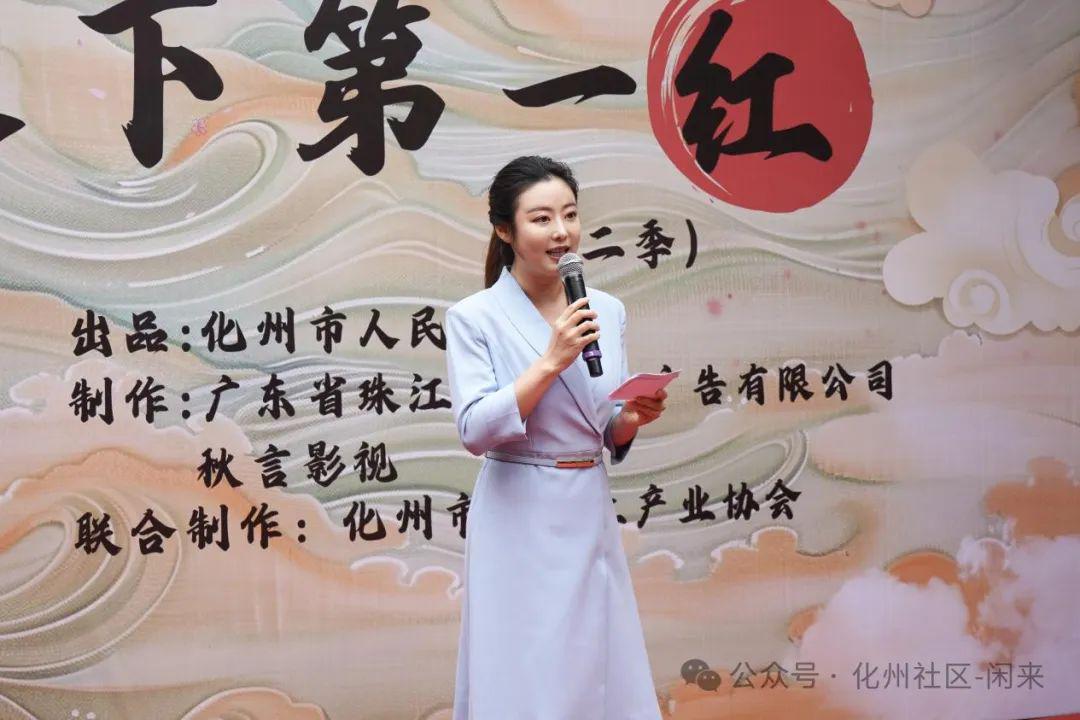 下第一红
二季）
出品:化州市人民
制作:广东省珠江 告有限公司
秋言影视
联合制作: 化州市 产业协会
公众号·化州社区-闲来